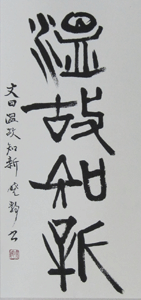 温故知新
文曰温故知新